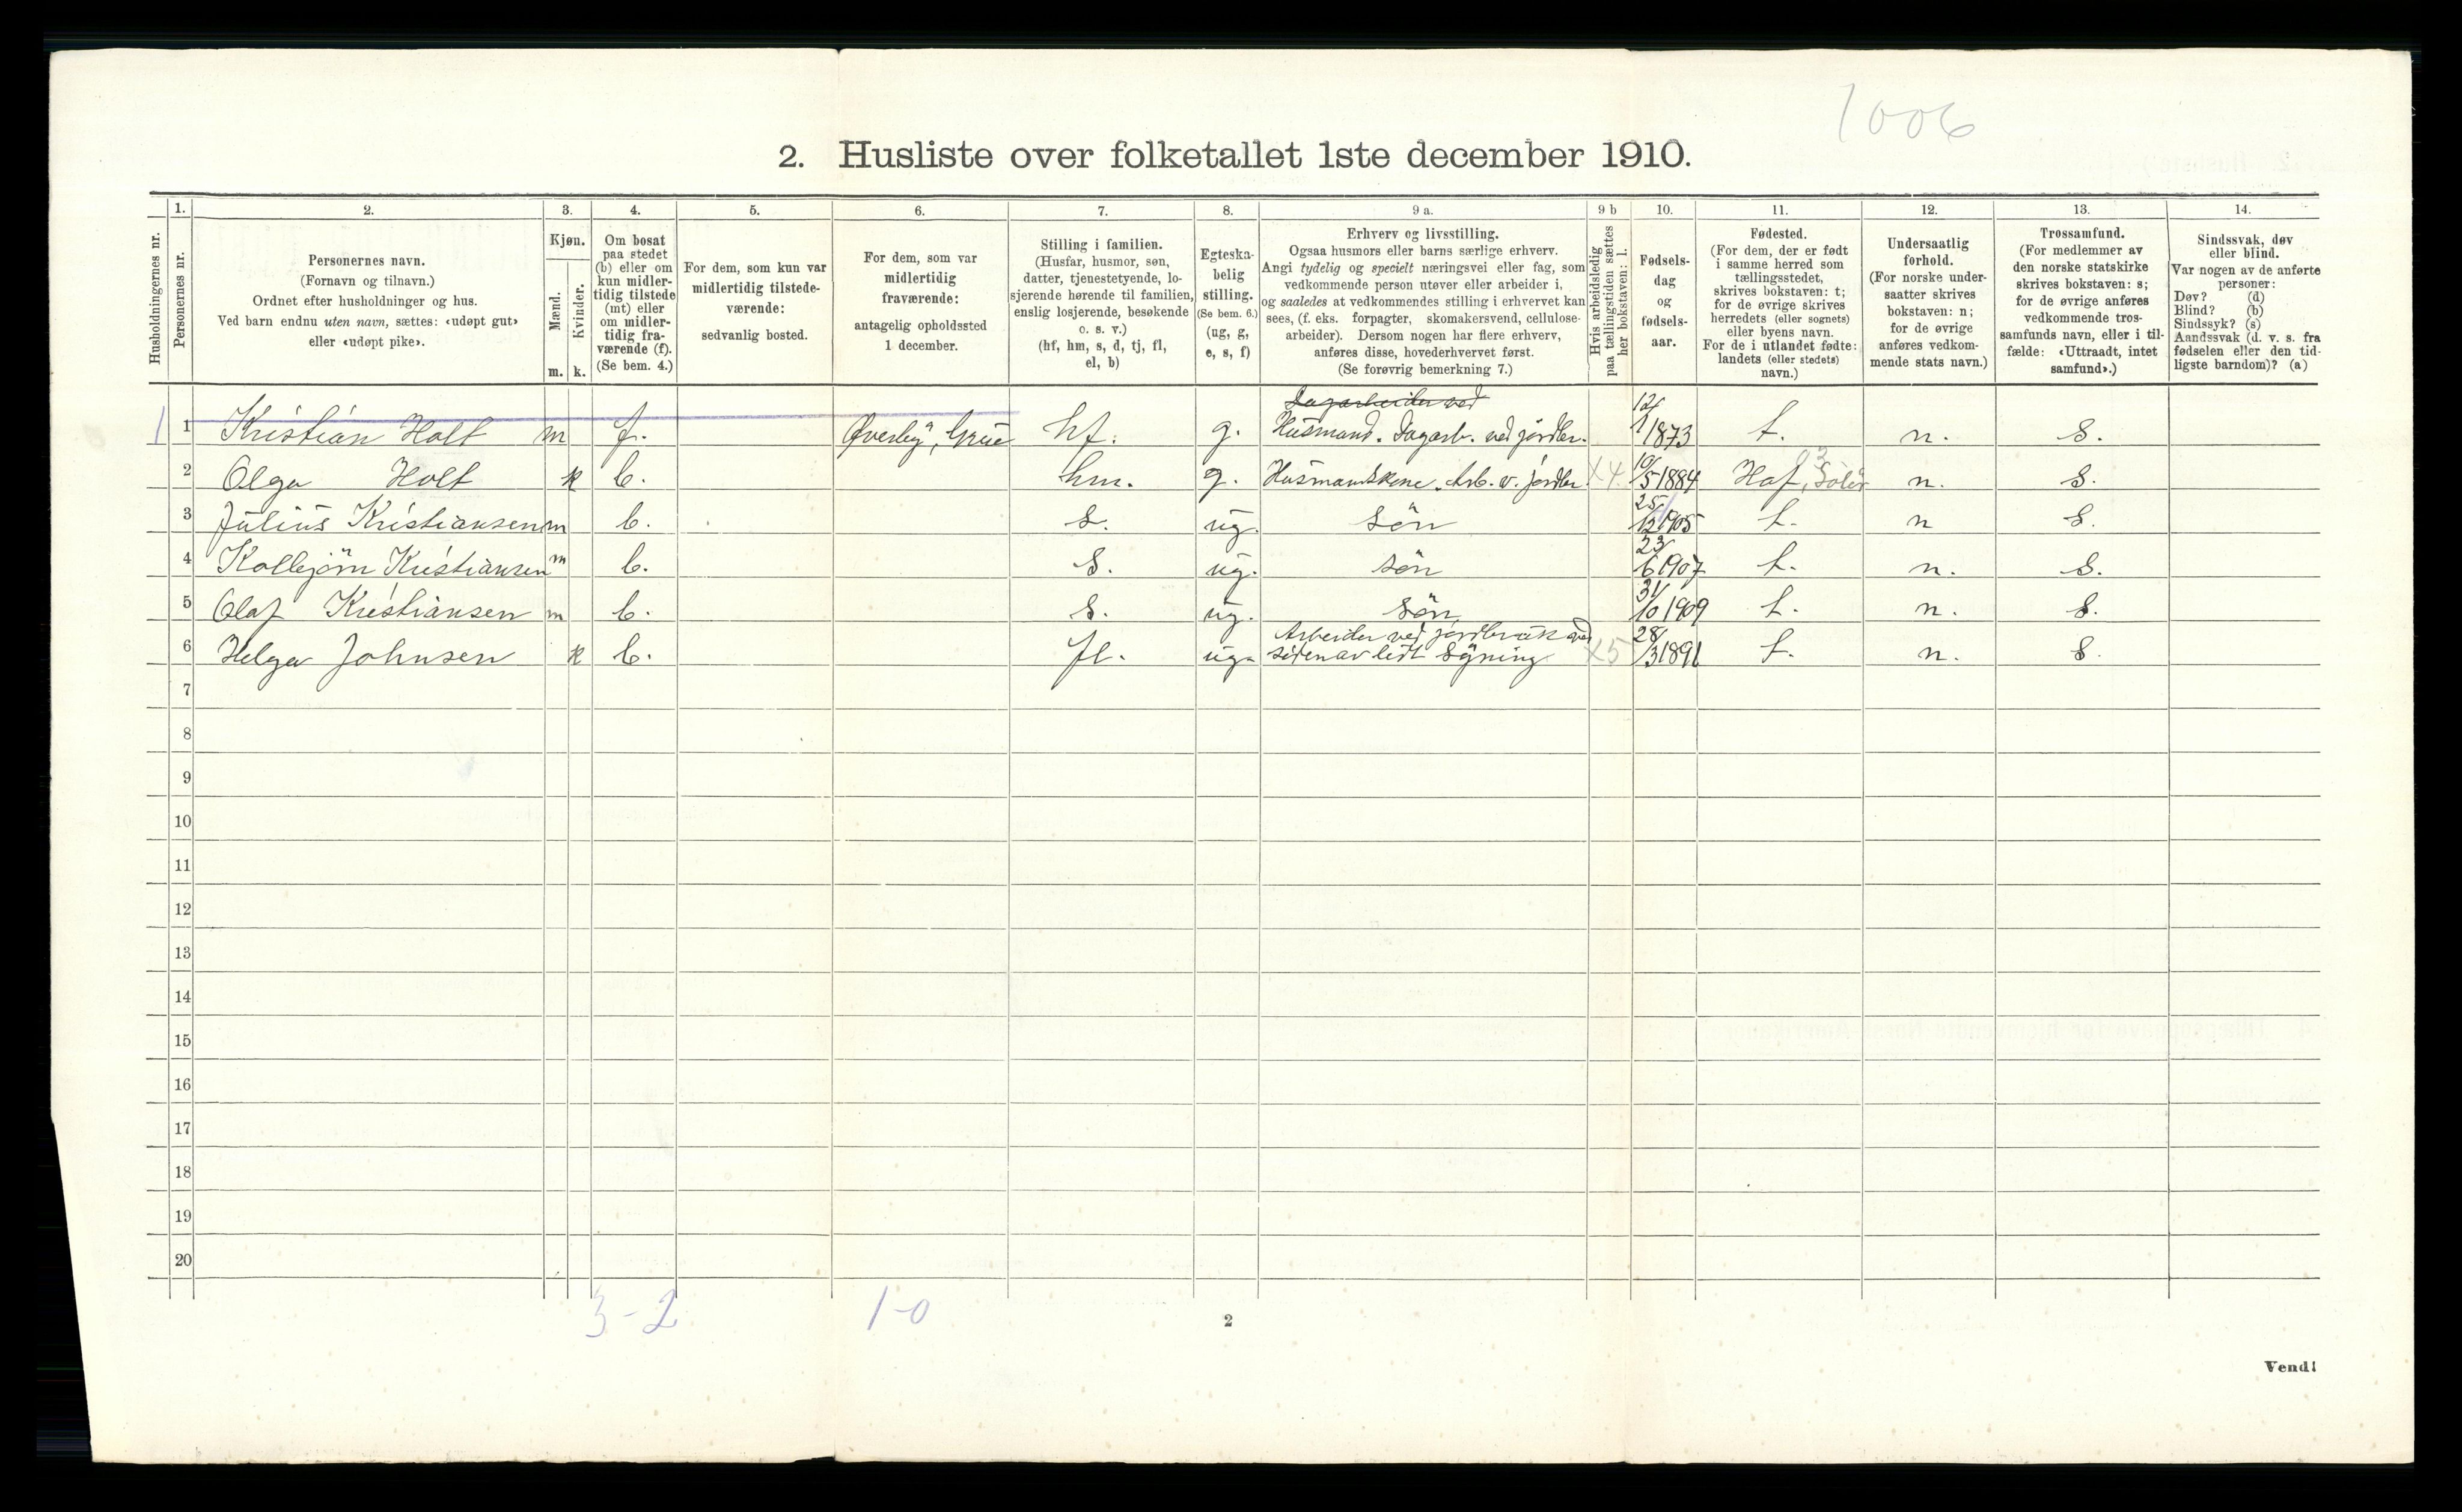 1006
2. Husliste over folketallet 1ste december 1910.
Husholdningernes nr.
1.
Personernes nr.
2.
Personernes navn.
(Fornavn og tilnavn.)
Ordnet efter husholdninger og hus.
Ved barn endnu uten navn, sættes: «udøpt gut»
eller «udøpt pike».
3.
Kjøn.
Mænd.
Kvinder.
m. k.
4.
Om bosat
paa stedet
(b) eller om
kun midler-
tidig tilstede
(mt) eller
om midler-
tidig fra-
værende (f).
(Se bem. 4.)
5.
For dem, som kun var
midlertidig tilstede-
værende:
sedvanlig bosted.
6.
For dem, som var
midlertidig
fraværende:
antagelig opholdssted
1 december.
7.
Stilling i familien.
(Husfar, husmor, søn,
datter, tjenestetyende, lo-
sjerende hørende til familien,
enslig losjerende, besøkende
o. s. v.)
(hf, hm, s, d, tj, fl,
el, b)
8.
Egteska-
belig
stilling.
(Se bem. 6.)
(ug, g,
e, s, f)
9 a.
Erhverv og livsstilling.
Ogsaa husmors eller barns særlige erhverv.
Angi tydelig og specielt næringsvei eller fag, som
vedkommende person utøver eller arbeider i,
og saaledes at vedkommendes stilling i erhvervet kan
sees, (f. eks. forpagter, skomakersvend, cellulose-
arbeider). Dersom nogen har flere erhverv,
anføres disse, hovederhvervet først.
(Se forøvrig bemerkning 7.)
9 b
Hvis arbeidsledig
paa tællingstiden sættes
her bokstaven: l.
10.
Fødsels-
dag
og
fødsels-
aar.
11.
Fødested.
(For dem, der er født
i samme herred som
tællingsstedet,
skrives bokstaven: t;
for de øvrige skrives
herredets (eller sognets)
eller byens navn.
For de i utlandet fødte:
landets (eller stedets)
navn.)
12.
Undersaatlig
forhold.
(For norske under-
saatter skrives
bokstaven: n;
for de øvrige
anføres vedkom-
mende stats navn.)
13.
Trossamfund.
(For medlemmer av
den norske statskirke
skrives bokstaven: s;
for de øvrige anføres
vedkommende tros-
samfunds navn, eller i til-
fælde: «Uttraadt, intet
samfund».)
14.
Sindssvak, døv
eller blind.
Var nogen av de anførte
personer:
Døv? (d)
Blind? (b)
Sindssyk? (s)
Aandssvak (d. v. s. fra
fødselen eller den tid-
ligste barndom)? (a)
Dagarbeider ved
1 1 Kristian Holt m f. Øverby, Grue hf. g. Husmand. Dagarb. ved jordbr. 12/1 1873 t. n. s.
2 Olga Holt k b. hm. g. Husmandskone. Arb. v. jordbr. X4 10/5 1884 Hof, Solør n. s.
3 Julius Kristiansen m b. s. ug. søn 25/12 1905 t. n s.
4 Kolbjörn Kristiansen m b. s. ug. søn 23/6 1907 t. n. s.
5 Olaf Kristiansen m b. s. ug. søn 31/10 1909 t. n. s.
Arbeider ved jordbruk ved
6 Helga Johnsen k b. fl. ug. siden av lidt syning X5 28/3 1891 t. n. s.
7
8
9
10
11
12
13
14
15
16
17
18
19
20
3-2 1-0
2
Vend!